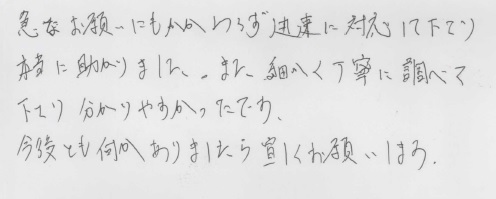 急なお願いにもかかわらず迅速に対応して下さり
本当に助かりました。また、細かく丁寧に調べて
下さり分かりやすかったです。
今後とも何かありましたら宜しくお願いします。